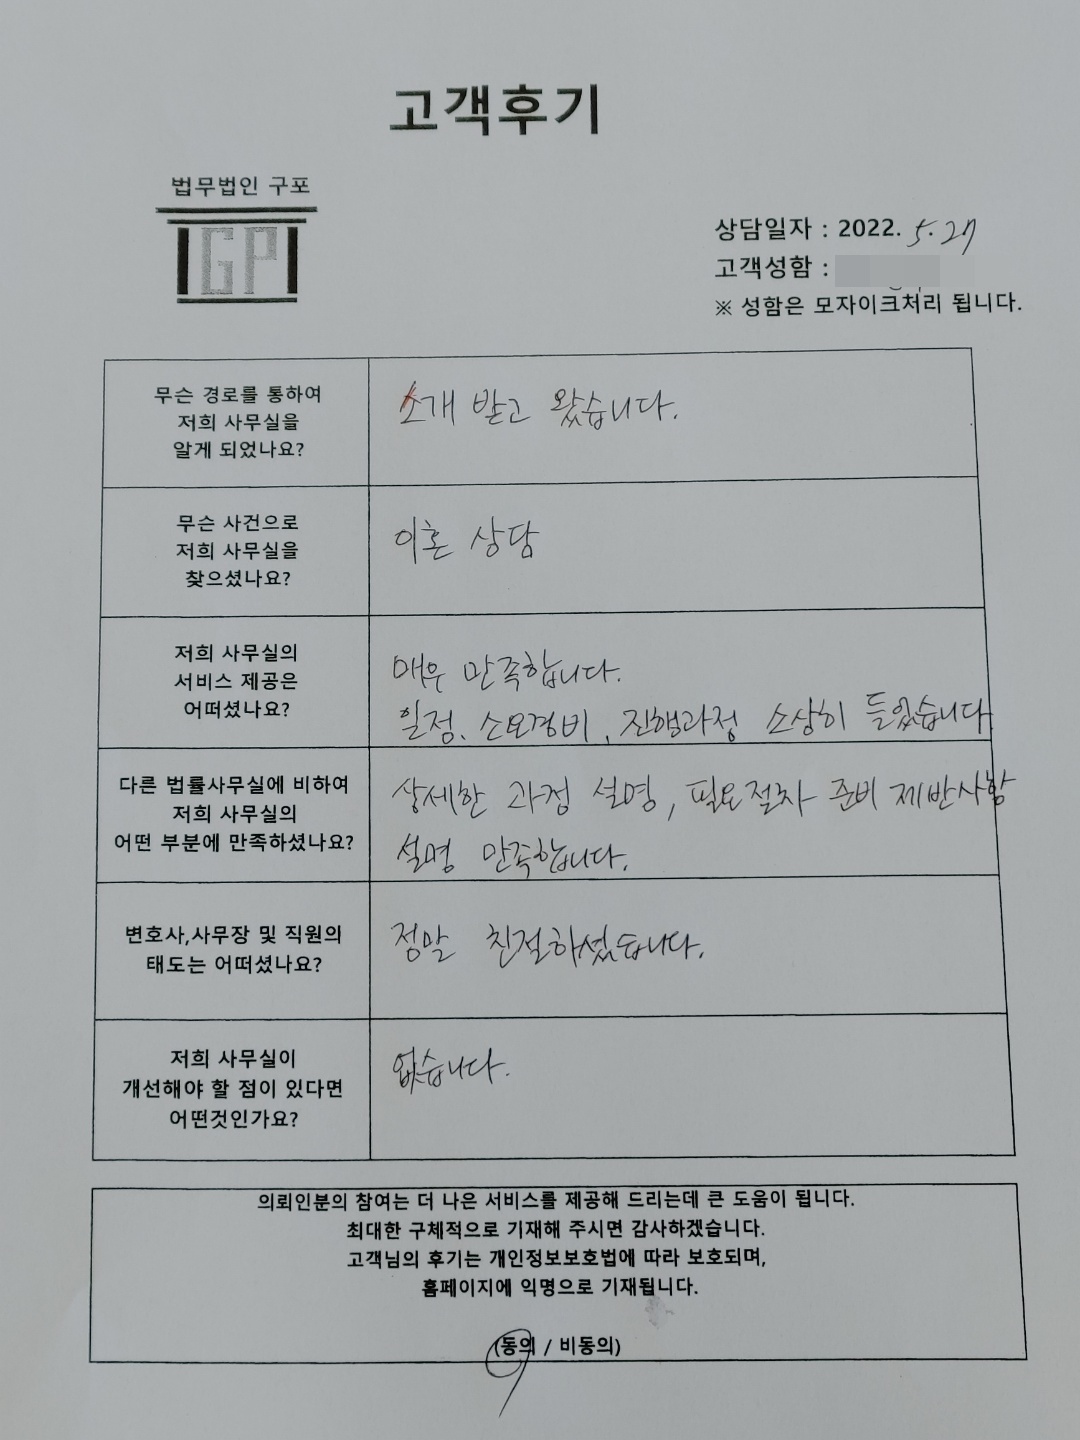 고객후기
법무법인 구포
IGPI
상담일자 : 2022. 5. 27
고객성함 :
※ 성함은 모자이크처리 됩니다.
무슨 경로를 통하여
저희 사무실을
알게 되었나요?
소개 받고 왔습니다.
무슨 사건으로
저희 사무실을
찾으셨나요?
이혼 상담
저희 사무실의
서비스 제공은
어떠셨나요?
매우 만족합니다.
일정, 소요경비, 진행과정 소상히 들었습니다.
다른 법률사무실에 비하여
저희 사무실의
어떤 부분에 만족하셨나요?
상세한 과정 설명, 필요절차 준비 제반사항
설명 만족합니다.
변호사,사무장 및 직원의
태도는 어떠셨나요?
정말 친절하셨습니다.
저희 사무실이
개선해야 할 점이 있다면
어떤것인가요?
없습니다.
의뢰인분의 참여는 더 나은 서비스를 제공해 드리는데 큰 도움이 됩니다.
최대한 구체적으로 기재해 주시면 감사하겠습니다.
고객님의 후기는 개인정보보호법에 따라 보호되며,
홈페이지에 익명으로 기재됩니다.
(동의 / 비동의)